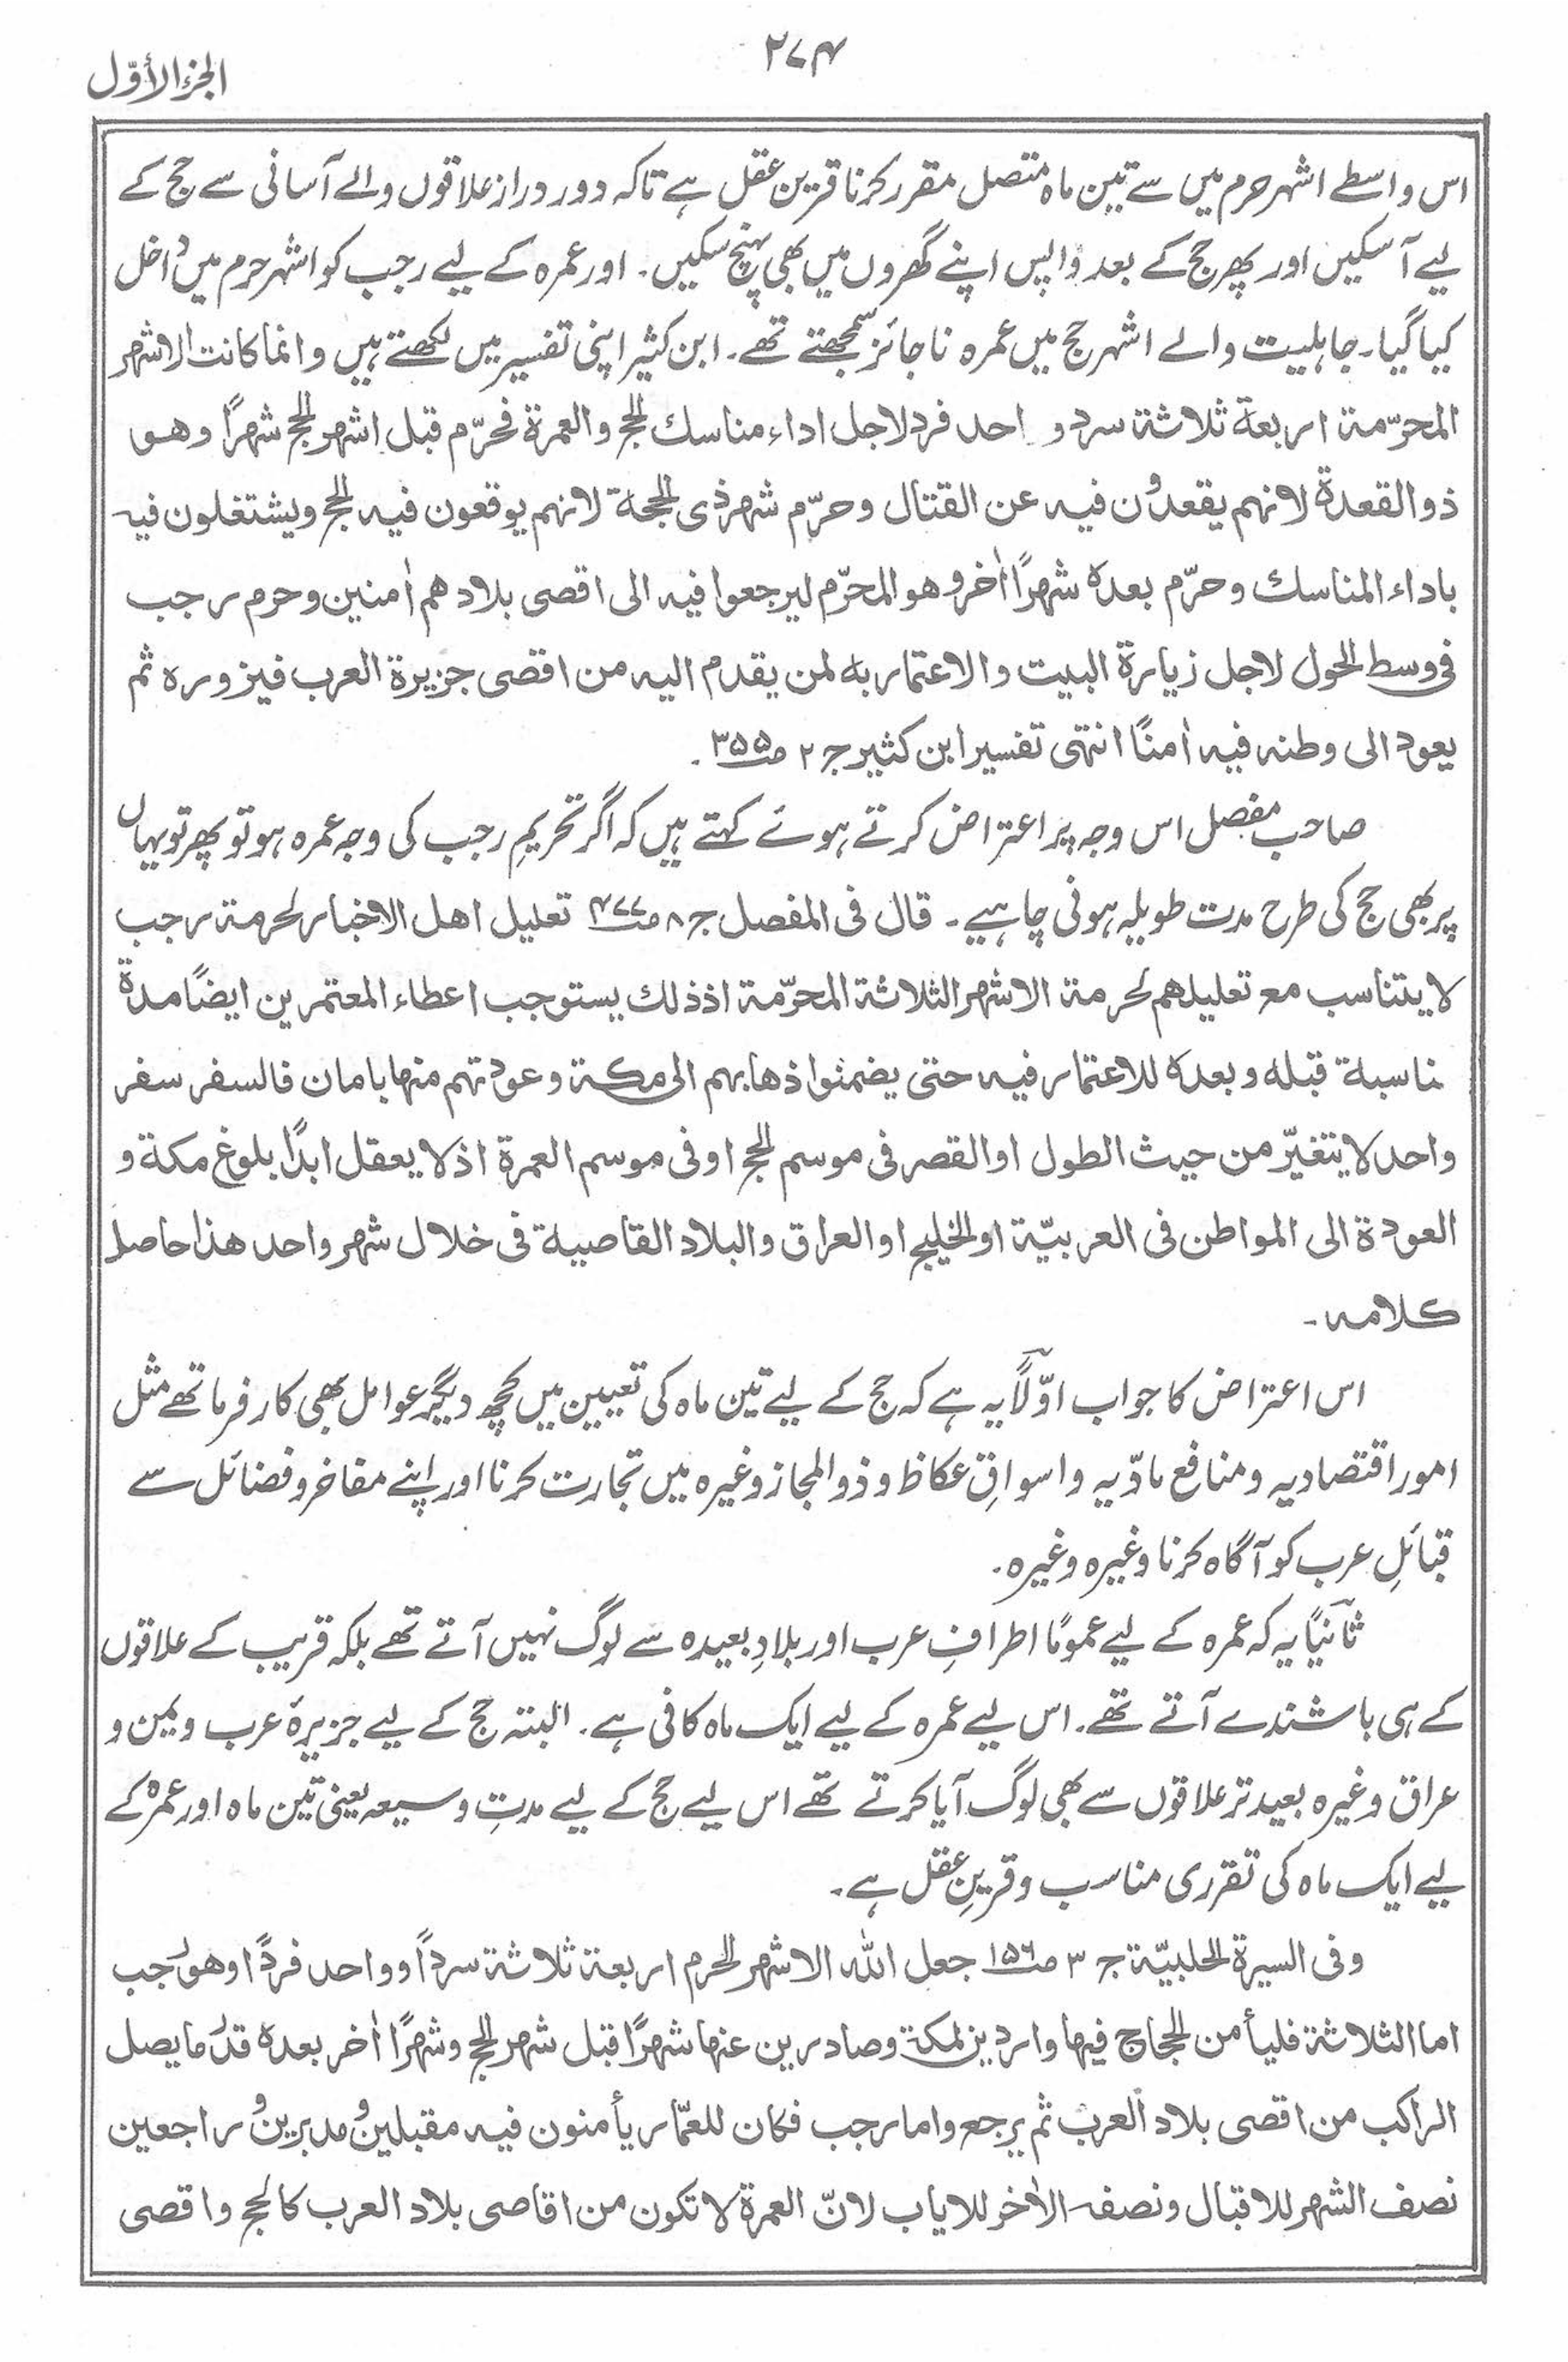 ۲۷۴
الجزء الأوّل
اس واسطے اشہر حرم میں سے تین ماہ متصل مقرر کرنا قرین عقل ہے تاکہ دور دراز علاقوں والے آسانی سے حج کے
لیے آسکیں اور پھر حج کے بعد واپس اپنے گھروں میں بھی پہنچ سکیں۔ اور عمرہ کے لیے رجب کو اشہر حرم میں داخل
کیا گیا۔ جاہلیت والے اشہر حج میں عمرہ ناجائز سمجھتے تھے۔ ابن کثیر اپنی تفسیر میں لکھتے ہیں وانما کانت الاشہر
المحرّمۃ اربعۃ ثلاثۃ سرد و احد فرد لاجل اداء مناسك الحج والعمرۃ فحرّم قبل اشہر الحج شہرًا وهو
ذوالقعدۃ لانہم یقعدُون فیہ عن القتال وحرّم شہر ذی الحجۃ لانہم یوقعون فیہ الحج ویشتغلون فیہ
باداء المناسك وحرّم بعدہ شہرًا اٰخر وهو المحرّم لیرجعوا فیہ الی اقصی بلادهم اٰمنین وحرم رجب
فی وسط الحول لاجل زیارۃ البیت والاعتمار بہ لمن یقدم الیہ من اقصی جزیرۃ العرب فیزورہ ثم
یعود الی وطنہ فیہ اٰمنًا انتہی تفسیر ابن کثیر ج ۲ ص ۳۵۵ ۔
صاحب مفصل اس وجہ پر اعتراض کرتے ہوئے کہتے ہیں کہ اگر تحریمِ رجب کی وجہ عمرہ ہو تو پھر تو یہاں
پر بھی حج کی طرح مدت طویلہ ہونی چاہیے۔ قال فی المفصل ج ۸ ص ۴۷۷ تعلیل اهل الاخبار لحرمۃ رجب
لا یتناسب مع تعلیلهم لحرمۃ الاشہر الثلاثۃ المحرّمۃ اذ ذلك یستوجب اعطاء المعتمرین ایضًا مدۃ
مناسبۃ قبلہ وبعدہ للاعتمار فیہ حتی یضمنوا ذهابہم الی مکۃ وعودتہم منہا بامان فالسفر سفر
واحد لا یتغیّر من حیث الطول او القصر فی موسم الحج او فی موسم العمرۃ اذ لا یعقل ابدًا بلوغ مکۃ و
العودۃ الی المواطن فی العربیّۃ او الخلیج او العراق والبلاد القاصیۃ فی خلال شہر واحد هذا حاصل
کلامہ۔
اس اعتراض کا جواب اوّلًا یہ ہے کہ حج کے لیے تین ماہ کی تعیین میں کچھ دیگر عوامل بھی کارفرما تھے مثل
امور اقتصادیہ و منافع مادّیہ و اسواقِ عکاظ و ذوالمجاز وغیرہ میں تجارت کرنا اور اپنے مفاخر و فضائل سے
قبائلِ عرب کو آگاہ کرنا وغیرہ وغیرہ۔
ثانیًا یہ کہ عمرہ کے لیے عمومًا اطرافِ عرب اور بلادِ بعیدہ سے لوگ نہیں آتے تھے بلکہ قریب کے علاقوں
کے ہی باشندے آتے تھے۔ اس لیے عمرہ کے لیے ایک ماہ کافی ہے۔ البتہ حج کے لیے جزیرۂ عرب و یمن و
عراق وغیرہ بعید تر علاقوں سے بھی لوگ آیا کرتے تھے اس لیے حج کے لیے مدتِ وسیعہ یعنی تین ماہ اور عمرہ کے
لیے ایک ماہ کی تقرری مناسب و قرینِ عقل ہے۔
وفی السیرۃ الحلبیّۃ ج ۳ ص ۱۵۶ جعل اللہ الاشہر الحرم اربعۃ ثلاثۃ سرداً وواحد فردًا وهو رجب
اما الثلاثۃ فلیأمن الحجاج فیہا واردین لمکۃ وصادرین عنہا شہرًا قبل شہر الحج وشہرًا اٰخر بعدہ قدر ما یصل
الراکب من اقصی بلاد العرب ثم یرجع واما رجب فکان للعمّار یأمنون فیہ مقبلین ومدبرین وراجعین
نصف الشہر للاقبال ونصفہ الاٰخر للایاب لانّ العمرۃ لا تکون من اقاصی بلاد العرب کالحج واقصی